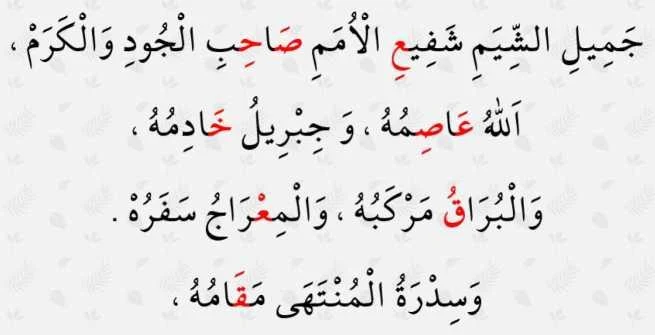 جَمِيلِ الشِّيَمِ شَفِيعِ الْاُمَمِ صَاحِبِ الْجُودِ وَالْكَرَمْ ،
اَللهُ عَاصِمُهُ ، وَ جِبْرِيلُ خَادِمُهُ ،
وَالْبُرَاقُ مَرْكَبُهُ ، وَالْمِعْرَاجُ سَفَرُهْ .
وَسِدْرَةُ الْمُنْتَهَى مَقَامُهُ ،